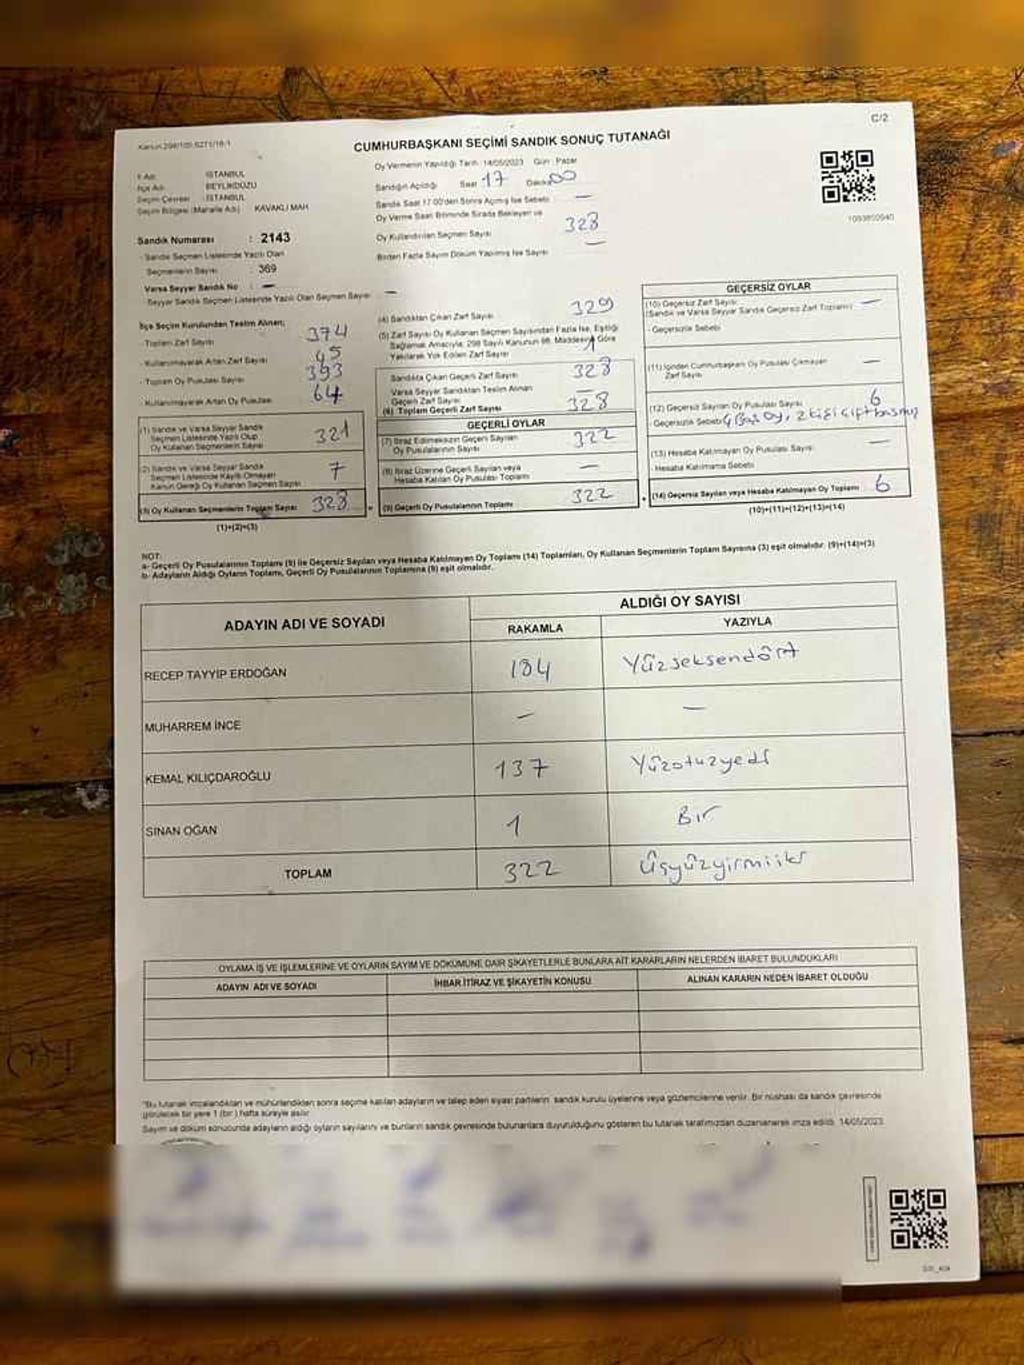 C/2
Kanun 298/105, 6271/18-1
CUMHURBAŞKANI SEÇİMİ SANDIK SONUÇ TUTANAĞI
İl Adı : İSTANBUL
İlçe Adı : BEYLİKDÜZÜ
Seçim Çevresi : İSTANBUL
Seçim Bölgesi (Mahalle Adı) KAVAKLI MAH
Sandık Numarası : 2143
Sandık Seçmen Listesinde Yazılı Olan
Seçmenlerin Sayısı : 369
Varsa Seyyar Sandık No : -
Seyyar Sandık Seçmen Listesinde Yazılı Olan Seçmen Sayısı -
Oy Vermenin Yapıldığı Tarih : 14/05/2023 Gün : Pazar
Sandığın Açıldığı Saat 17 Dakika 00
Sandık Saat 17.00'den Sonra Açılmış İse Sebebi -
Oy Verme Saati Bitiminde Sırada Bekleyen ve
Oy Kullandırılan Seçmen Sayısı 328
Birden Fazla Sayım Döküm Yapılmış İse Sayısı -
1093850940
İlçe Seçim Kurulundan Teslim Alınan;
- Toplam Zarf Sayısı 374
- Kullanılmayarak Artan Zarf Sayısı 45
- Toplam Oy Pusulası Sayısı 393
- Kullanılmayarak Artan Oy Pusulası 64
(1) Sandık ve Varsa Seyyar Sandık
Seçmen Listesinde Yazılı Olup
Oy Kullanan Seçmenlerin Sayısı 321
(2) Sandık ve Varsa Seyyar Sandık
Seçmen Listesinde Kayıtlı Olmayan
Kanun Gereği Oy Kullanan Seçmen Sayısı 7
(3) Oy Kullanan Seçmenlerin Toplam Sayısı 328
(1)+(2)=(3)
(4) Sandıktan Çıkan Zarf Sayısı 329
(5) Zarf Sayısı Oy Kullanan Seçmen Sayısından Fazla İse, Eşitliği
Sağlamak Amacıyla, 298 Sayılı Kanunun 98. Maddesine Göre
Yakılarak Yok Edilen Zarf Sayısı 1
Sandıkta Çıkan Geçerli Zarf Sayısı 328
Varsa Seyyar Sandıktan Teslim Alınan
Geçerli Zarf Sayısı -
(6) Toplam Geçerli Zarf Sayısı 328
GEÇERLİ OYLAR
(7) İtiraz Edilmeksizin Geçerli Sayılan
Oy Pusulalarının Sayısı 322
(8) İtiraz Üzerine Geçerli Sayılan veya
Hesaba Katılan Oy Pusulası Toplamı -
(9) Geçerli Oy Pusulalarının Toplamı 322
GEÇERSİZ OYLAR
(10) Geçersiz Zarf Sayısı
(Sandık ve Varsa Seyyar Sandık Geçersiz Zarf Toplamı) -
- Geçersizlik Sebebi
(11) İçinden Cumhurbaşkanı Oy Pusulası Çıkmayan
Zarf Sayısı -
(12) Geçersiz Sayılan Oy Pusulası Sayısı 6
Geçersizlik Sebebi 4 Boş Oy, 2 kişi çift basmış
(13) Hesaba Katılmayan Oy Pusulası Sayısı -
- Hesaba Katılmama Sebebi
(14) Geçersiz Sayılan veya Hesaba Katılmayan Oy Toplamı 6
(10)+(11)+(12)+(13)=(14)
NOT:
a- Geçerli Oy Pusulalarının Toplamı (9) ile Geçersiz Sayılan veya Hesaba Katılmayan Oy Toplamı (14) Toplamları, Oy Kullanan Seçmenlerin Toplam Sayısına (3) eşit olmalıdır. (9)+(14)=(3)
b- Adayların Aldığı Oyların Toplamı, Geçerli Oy Pusulalarının Toplamına (9) eşit olmalıdır.
ADAYIN ADI VE SOYADI ALDIĞI OY SAYISI
RAKAMLA YAZIYLA
RECEP TAYYİP ERDOĞAN 184 Yüzseksendört
MUHARREM İNCE - -
KEMAL KILIÇDAROĞLU 137 Yüzotuzyedi
SİNAN OĞAN 1 Bir
TOPLAM 322 Üçyüzyirmiiki
OYLAMA İŞ VE İŞLEMLERİNE VE OYLARIN SAYIM VE DÖKÜMÜNE DAİR ŞİKAYETLERLE BUNLARA AİT KARARLARIN NELERDEN İBARET BULUNDUKLARI
ADAYIN ADI VE SOYADI İHBAR İTİRAZ VE ŞİKAYETİN KONUSU ALINAN KARARIN NEDEN İBARET OLDUĞU
"Bu tutanak imzalandıktan ve mühürlendikten sonra seçime katılan adayların ve talep eden siyasi partilerin sandık kurulu üyelerine veya gözlemcilerine verilir. Bir nüshası da sandık çevresinde
görülecek bir yere 1 (bir) hafta süreyle asılır
Sayım ve döküm sonucunda adayların aldığı oyların sayılarını ve bunların sandık çevresinde bulunanlara duyurulduğunu gösteren bu tutanak tarafımızdan düzenlenerek imza edildi. 14/05/2023